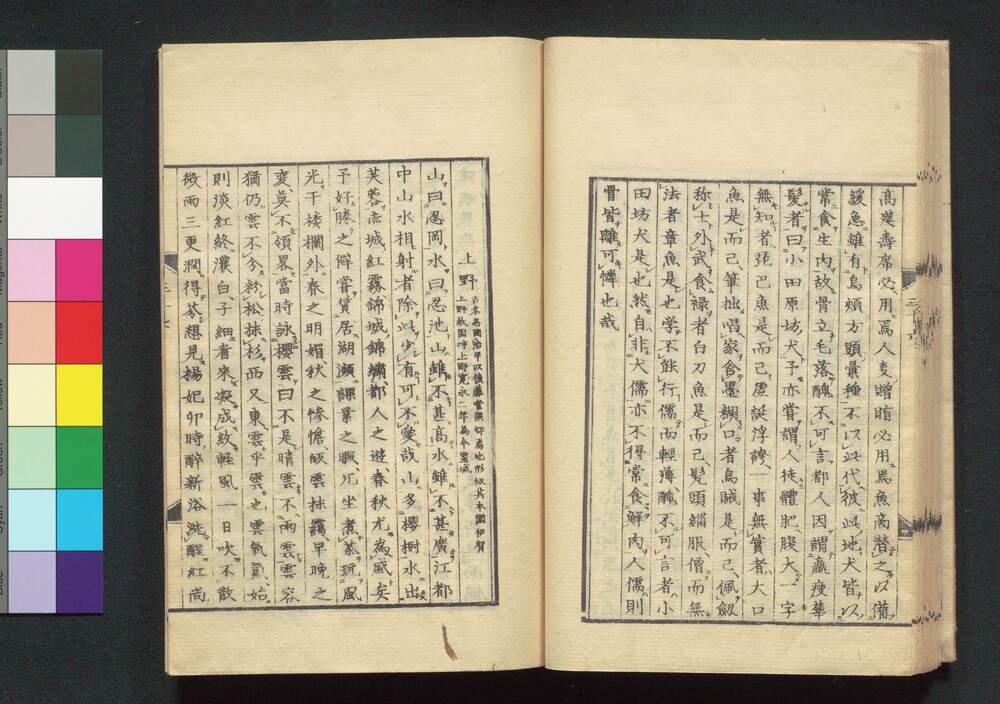 高漢壽席必用焉人夋贈賄必用焉魚商替之以備
緩急雖有烏頬方頭彙種不以此代彼此地犬皆以
常食生肉故骨立毛落醜不可言都人因謂羸瘦華
髮者曰小田原坊犬予亦嘗謂人徒體肥腹大一字
無知者張己魚是而已虛誕浮誇一事無實者大口
魚是而已筆拙唱家含墨糊口者烏賊是而已佩劔
称士外武食祿者白刀魚是而已髡頭緇服僧而無
法者章魚是也学不能行儒而輕薄醜不可言者小
田坊犬是也然自非犬儒亦不得常食鮮肉人儒則
骨皆雖可憐也哉
上野
山曰忍岡水曰忍池山雖不甚高水雖不甚廣江都
中山水相射者除此少有可不愛哉山多櫻樹水出
芙蓉赤城紅霧錦城錦繡都人之遊春秋尤為盛矣
予好勝之僻嘗賃居湖瀕課業之暇凡坐煮茶玩風
光干楼欄外春之明媚秋之惨憺皈雲抹靄早晩之
変莫不領畧當時詠櫻雲曰不是晴雲不雨雲雲容
猶仍雲不分粉松抹杉西又東雲乎雲也雲氣氤始
則淡紅終濃白子細看來凝成紋軽風一日吹不散
微雨三更潤得芬想見揚妃卯時醉新浴洗醒紅尚